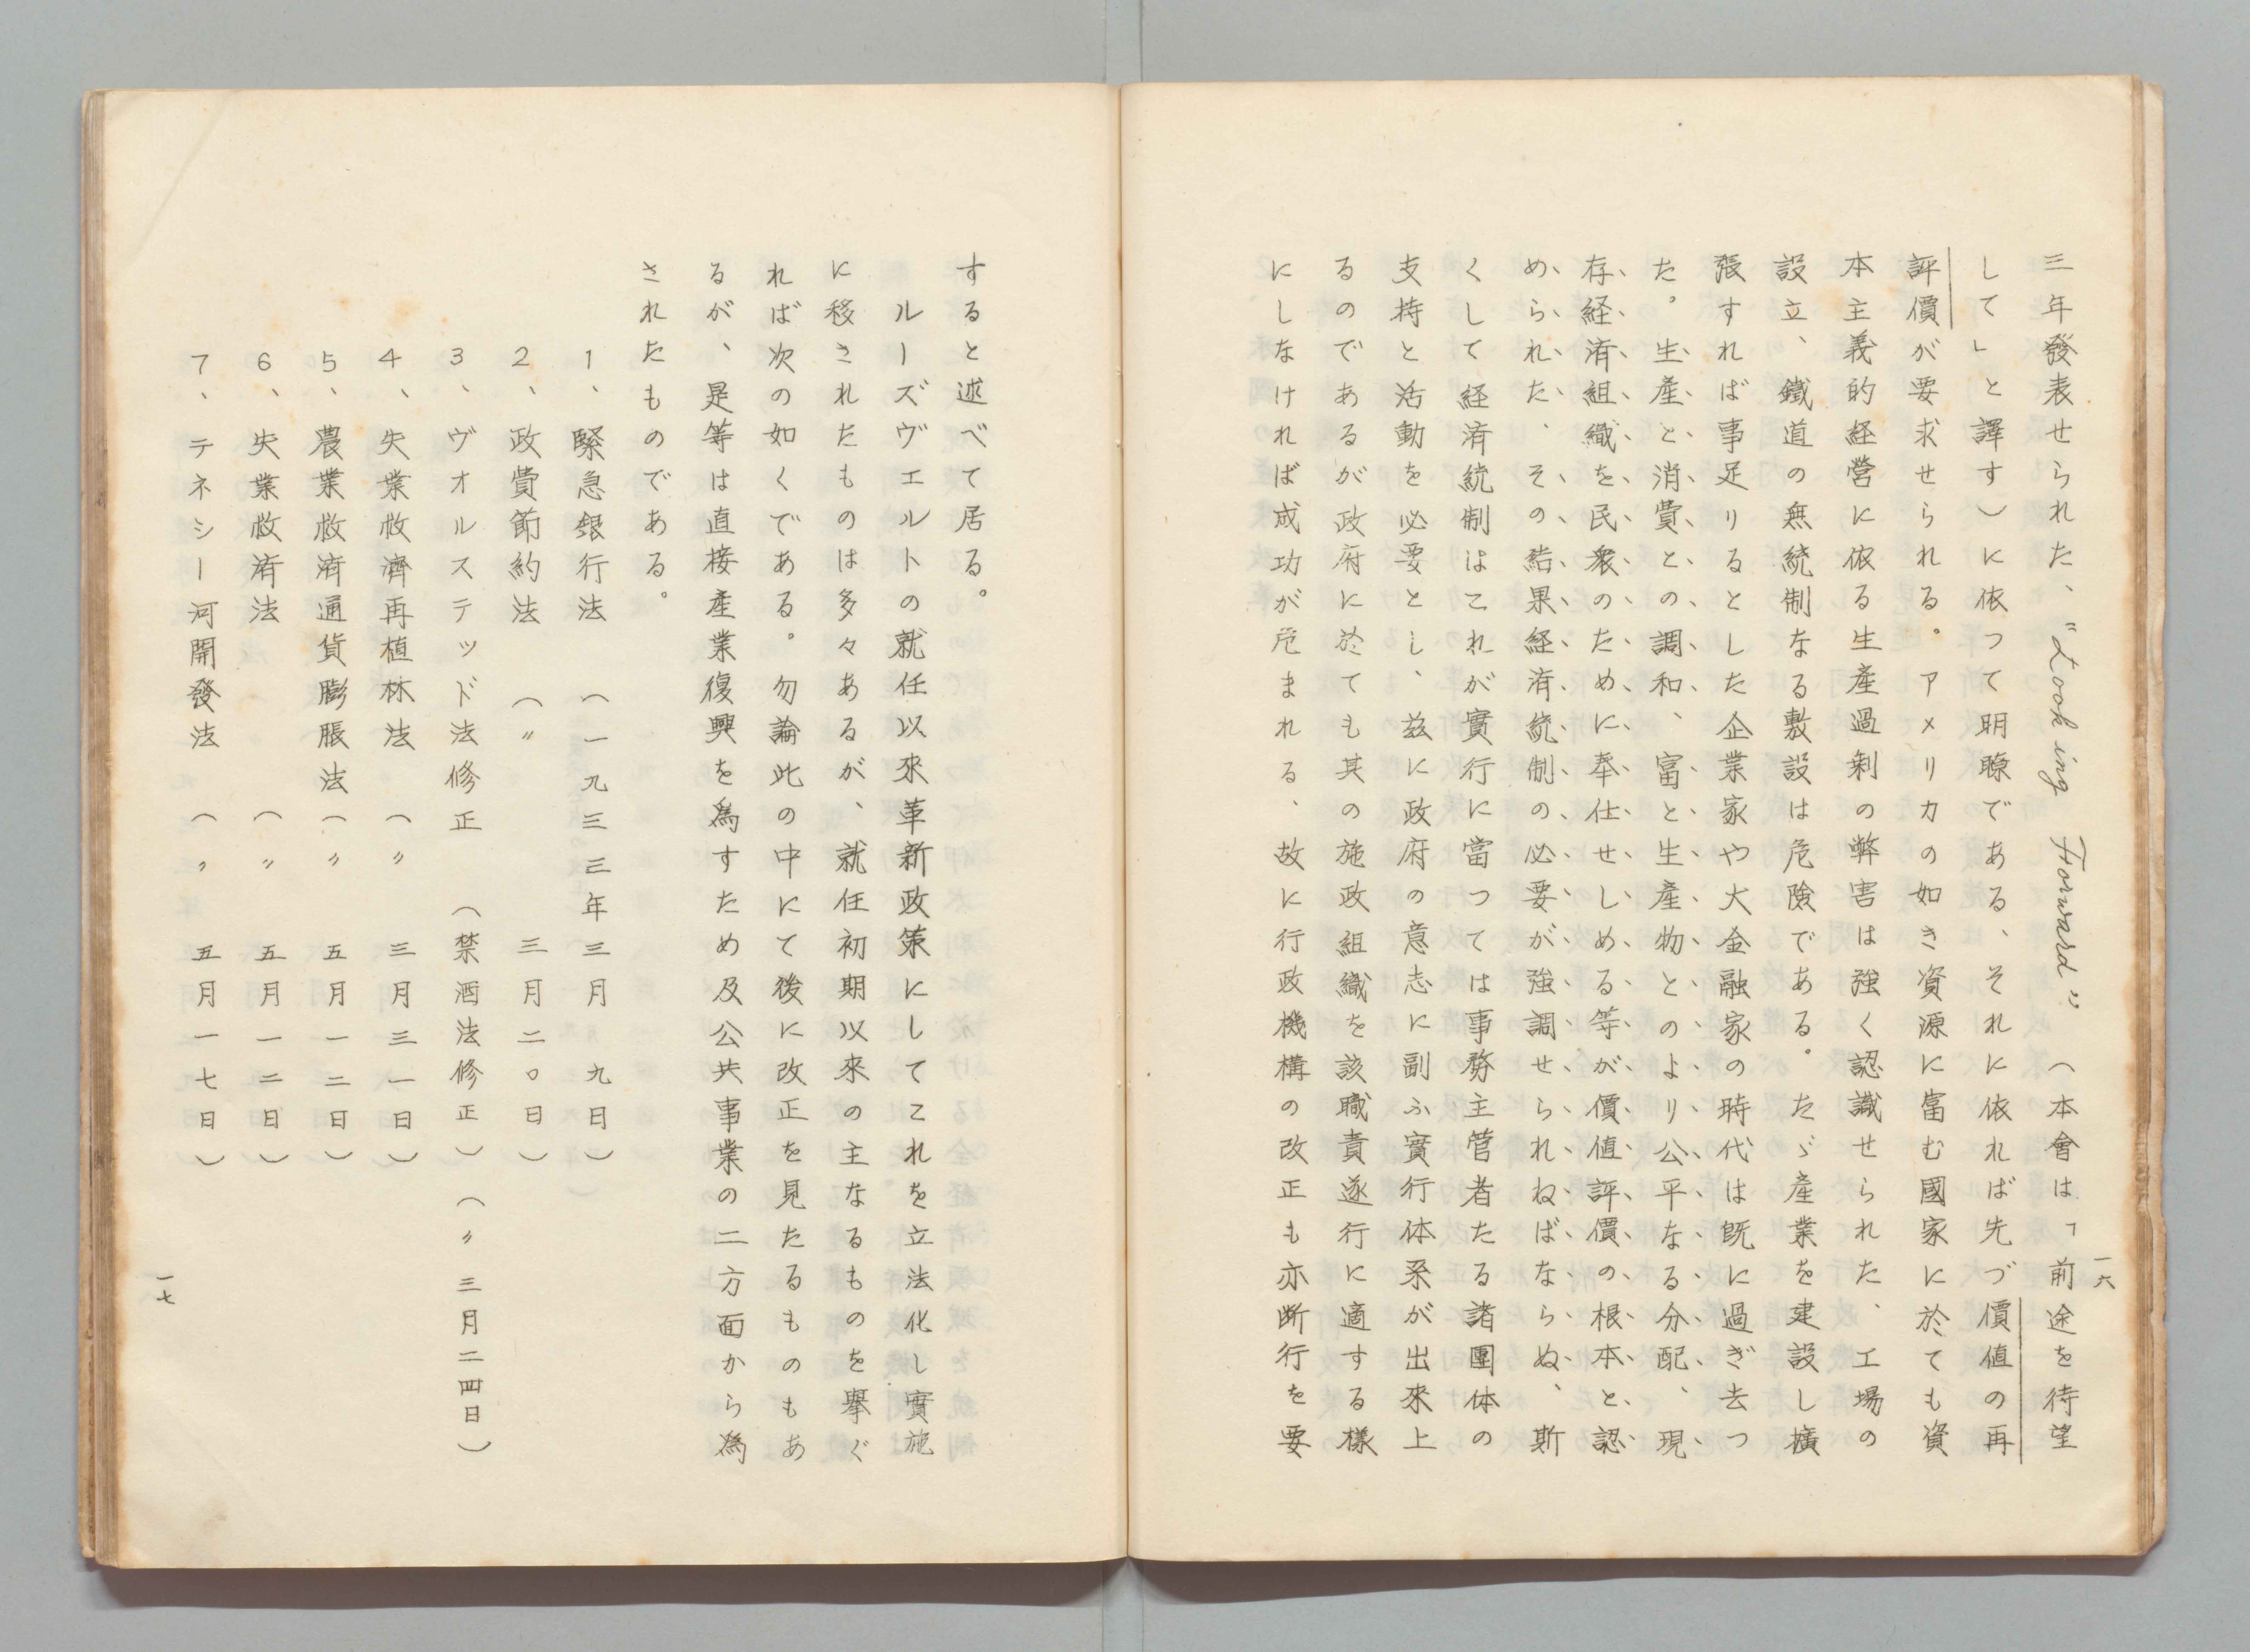 一六
三年發表せられた、"Looking Forward"（本會は「前途を待望
して」と譯す）に依つて明瞭である、それに依れば先づ價値の再
評價が要求せられる。アメリカの如き資源に富む國家に於ても資
本主義的経営に依る生産過剰の弊害は強く認識せられた、工場の
設立、鐵道の無統制なる敷設は危險である。たゞ産業を建設し擴
張すれば事足りるとした企業家や大金融家の時代は既に過ぎ去つ
た。生産と消費との調和、富と生産物とのより公平なる分配、現
存経済組織を民衆のために奉仕せしめる等が價値評價の根本と認
められた、その結果経済統制の必要が強調せられねばならぬ、斯
くして経済統制はこれが實行に當つては事務主管者たる諸團体の
支持と活動を必要とし、茲に政府の意志に副ふ實行体系が出來上
るのであるが政府に於ても其の施政組織を該職責遂行に適する樣
にしなければ成功が危まれる、故に行政機構の改正も亦断行を要
すると述べて居る。
ルーズヴェルトの就任以來革新政策にしてこれを立法化し實施
に移されたものは多々あるが、就任初期以來の主なるものを擧ぐ
れば次の如くである。勿論此の中にて後に改正を見たるものもあ
るが、是等は直接産業復興を爲すため及公共事業の二方面から爲
されたものである。
1、緊急銀行法（一九三三年三月九日）
2、政費節約法（〃三月二〇日）
3、ヴオルステッド法修正（禁酒法修正）（〃三月二四日）
4、失業救濟再植林法（〃三月三一日）
5、農業救済通貨膨脹法（〃五月一二日）
6、失業救済法（〃五月一二日）
7、テネシー河開發法（〃五月一七日）
一七